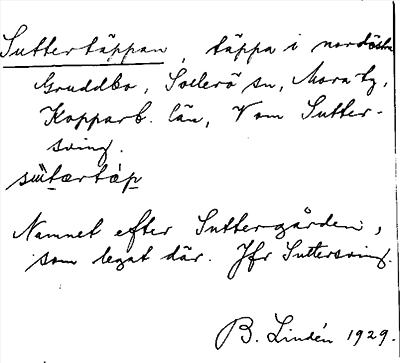 Suttertäppan, täppa i nordöstra
Gruddbo, Sollerö sn, Mora tg,
Kopparb. län, V om Sutter-
sving.
su̇tærtɛp
Namnet efter Suttergården,
som legat där. Jfr Suttersving.
B. Lindén 1929.